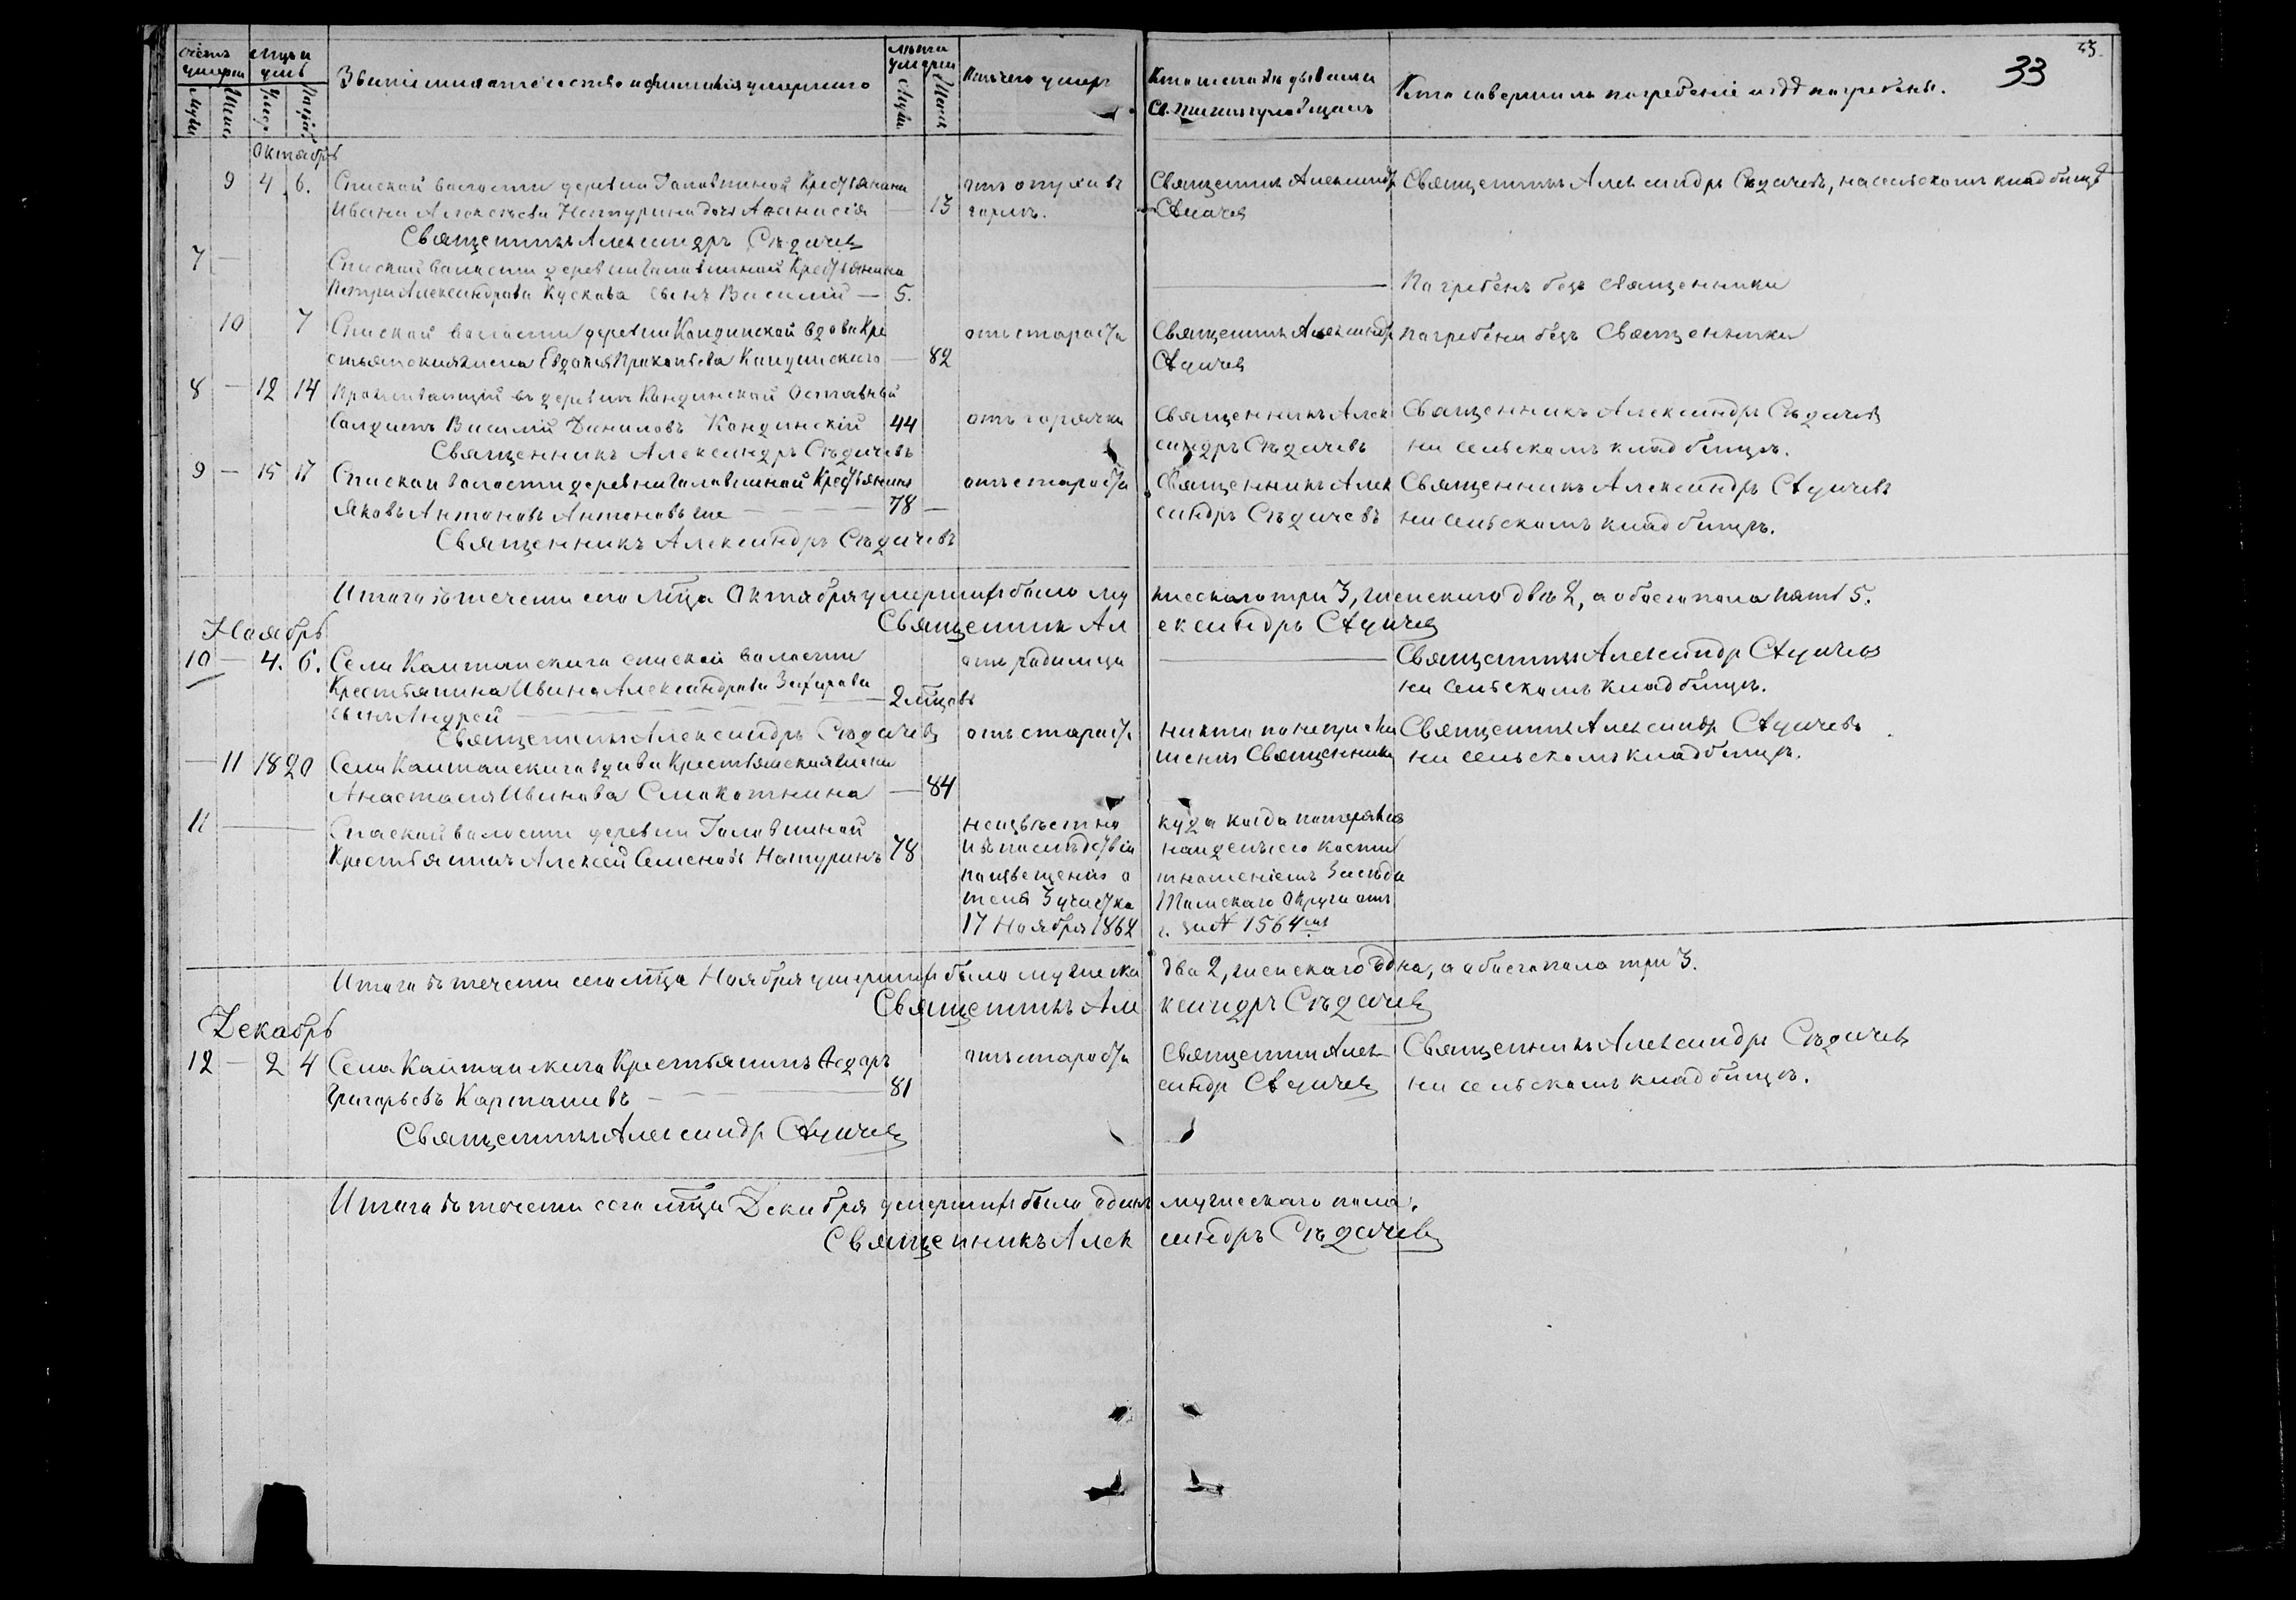 33
Счетъ умерш
Мцъ и день
Званіе имя отчество и фамилія умершаго
лета умерш
Отъ чего умеръ
Кто исповѣдывалъ и пріобщалъ
Кто совершилъ погребеніе и гдѣ погребены.
Октябрь
9 4 6. Спаской волости деревни Головиной Крестьянина
Ивана Алексѣева Натурина дочь Афанасія — 13
отъ опухоли въ
горлѣ.
Священникъ Александръ
Сѣдачевъ
Священникъ Александръ Сѣдачевъ, на сельскомъ кладбищѣ
Священникъ Александръ Сѣдачевъ
7 — Спаской волости деревни Головиной Крестьянина
Петра Александрова Кускова сынъ Василій — 5.
Погребенъ безъ священника
10 7 Спаской волости деревни Кандинской вдова Кре
стьянская жена Евдокія Прокопьева Кандинскаго — 82
отъ старости
Священникъ Александръ
Сѣдачевъ
Погребена безъ Священника
8 — 12 14 Проживающій въ деревнѣ Кандинской Отставный
Солдатъ Василій Даниловъ Кандинскій 44
отъ горячки
Священникъ Алек
сандръ Сѣдачевъ
Священникъ Александръ Сѣдачевъ
на сельскомъ кладбищѣ.
Священникъ Александръ Сѣдачевъ
9 — 15 17 Спаской волости деревни Головиной Крестьянинъ
Яковъ Антоновъ Антоновъ же — 78 —
отъ старости
Священникъ Алек
сандръ Сѣдачевъ
Священникъ Александръ Сѣдачевъ
на сельскомъ кладбищѣ.
Священникъ Александръ Сѣдачевъ
Итого въ теченіи сего Мца Октября умершихъ было му жескаго три 3, женскаго двѣ 2, а обоего пола пять 5.
Священникъ Ал ександръ Сѣдачевъ
Ноябрь
10 — 4. 6. Села Калтайскаго спаской волости
Крестьянина Ивана Александрова Захарова
сынъ Андрей — 2 мцовъ
отъ родимца
Священникъ Александръ Сѣдачевъ
на сельскомъ кладбищѣ.
Священникъ Александръ Сѣдачевъ
— 11 18 20 Села Калтайскаго вдова Крестьянская жена
Анастасія Иванова Смокотнина — 84
отъ старости.
никто по непригла
шенію Священника
Священникъ Александръ Сѣдачевъ
на сельскомъ кладбищѣ.
11 — Спаской волости деревни Головиной
Крестьянинъ Алексей Семеновъ Натуринъ 78
неизвѣстно куда когда потерялся
и въ послѣдствіи найдены его кости
по извещенію о тношеніемъ Засѣда
теля 3 участка Томскаго Округа отъ
17 Ноября 1862 г. за № 1564
Итого въ теченіи сего мца Ноября умершихъ было мужеска два 2, женскаго одна, а обоего пола три 3.
Священникъ Але ксандръ Сѣдачевъ
Декабрь
12 — 2 4 Села Калтайскаго Крестьянинъ Ѳедоръ
Григорьевъ Карташевъ — 81
отъ старости
Священникъ Алек
сандръ Сѣдачевъ
Священникъ Александръ Сѣдачевъ
на сельскомъ кладбищѣ.
Священникъ Александръ Сѣдачевъ
Итого въ теченіи сего мца Декабря умершихъ было одинъ мужескаго пола.
Священникъ Алек сандръ Сѣдачевъ